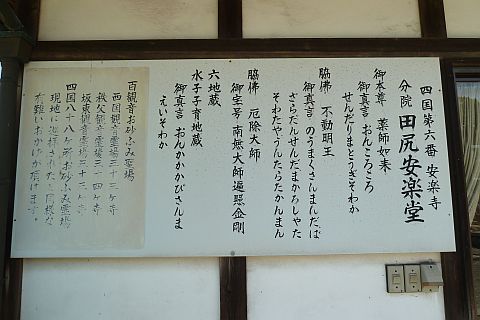 四国第六番 安楽寺
分院 田尻安楽堂
御本尊 薬師如来
御真言 おんころころ
せんだりまとうぎそわか
脇佛 不動明王
御真言 のうまくさんまんだば
ざらだんせんだまかろしゃた
そわたやうんたらたかんまん
脇佛 厄除大師
御宝号 南無大師遍照金剛
六地蔵
水子子育地蔵
御真言 おんかかかびさんま
えいそわか
百観音お砂ふみ霊場
西国観音霊場三十三ヶ寺
秩父観音霊場三十四ヶ寺
坂東観音霊場三十三ヶ寺
四国八十八ヶ所お砂ふみ霊場
現地に巡拝されたと同様な
有難いおかげが頂けます。